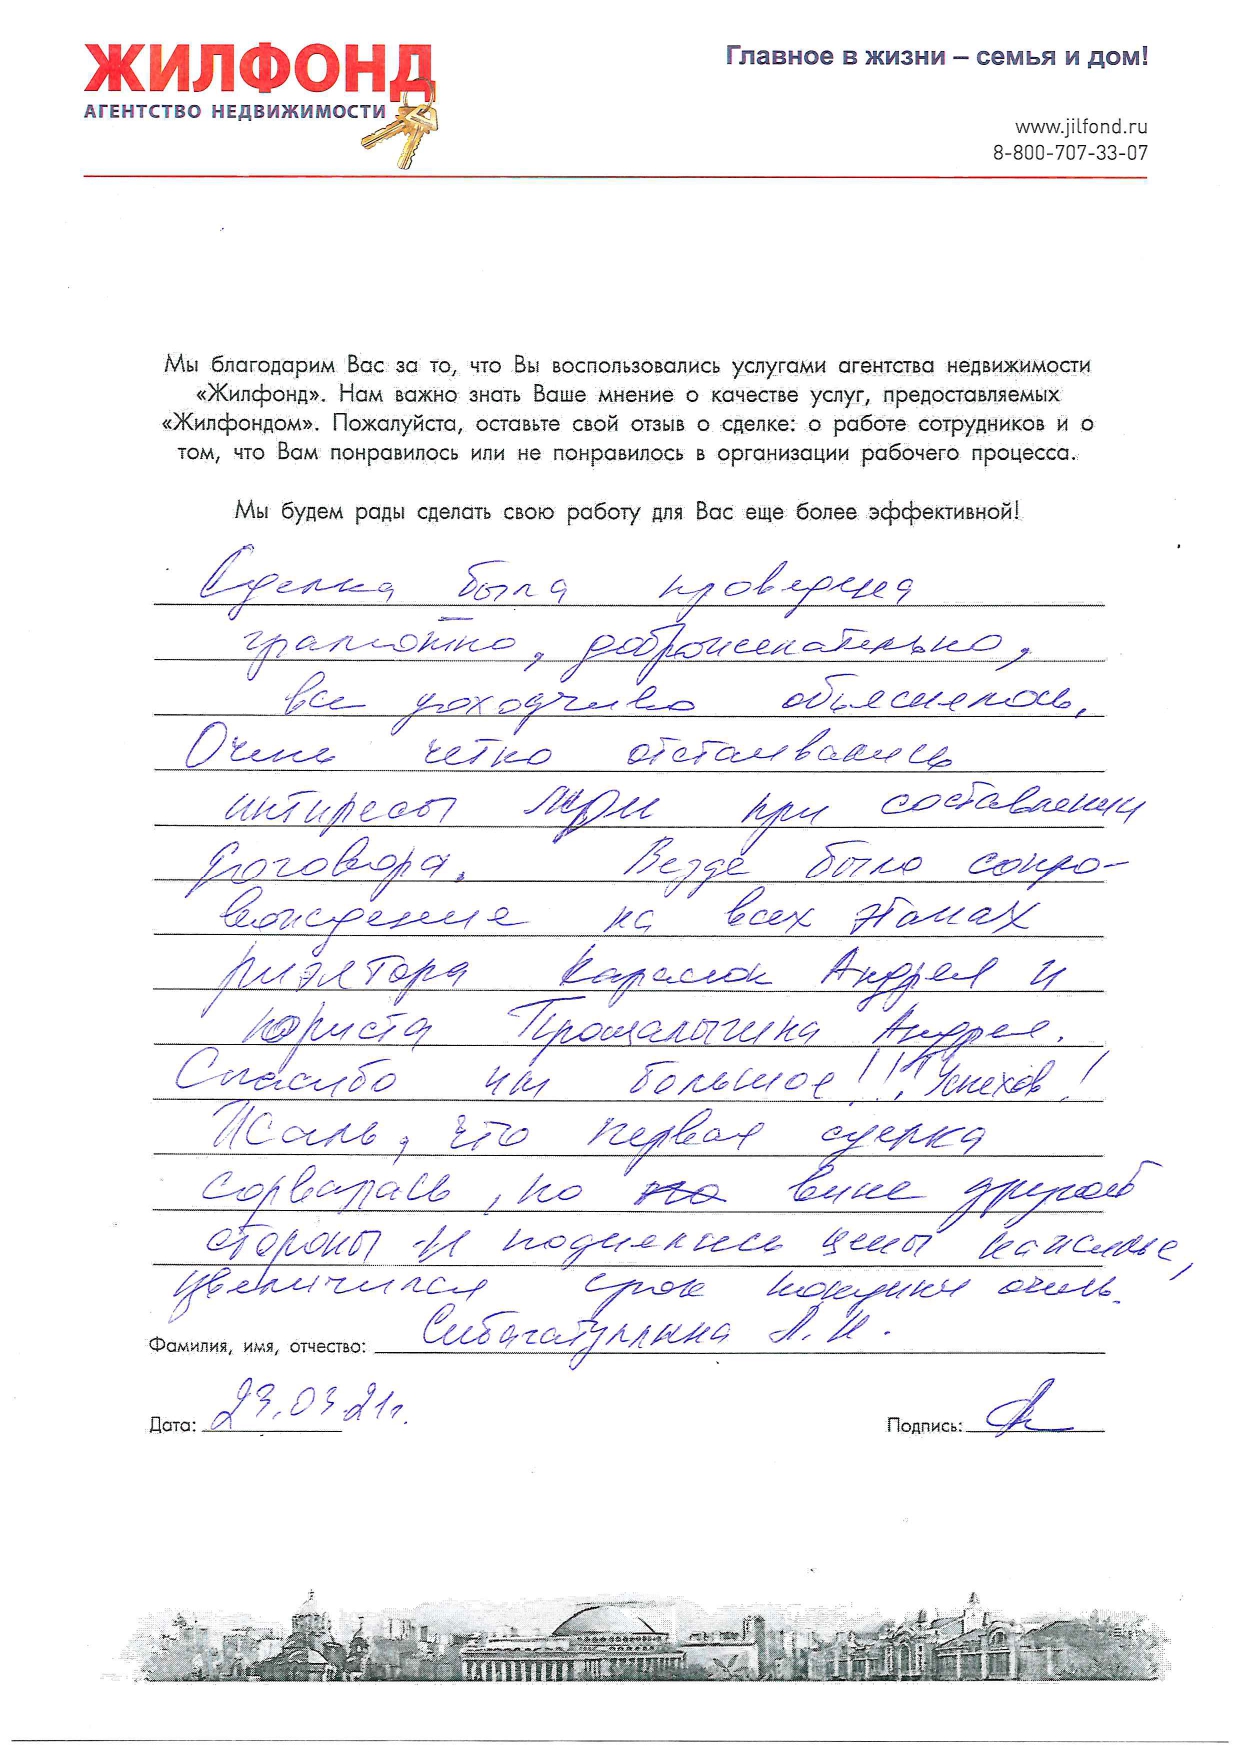 ЖИЛФОНД
АГЕНТСТВО НЕДВИЖИМОСТИ
Главное в жизни – семья и дом!
www.jilfond.ru
8-800-707-33-07
Мы благодарим Вас за то, что Вы воспользовались услугами агентства недвижимости
«Жилфонд». Нам важно знать Ваше мнение о качестве услуг, предоставляемых
«Жилфондом». Пожалуйста, оставьте свой отзыв о сделке: о работе сотрудников и о
том, что Вам понравилось или не понравилось в организации рабочего процесса.
Мы будем рады сделать свою работу для Вас еще более эффективной!
Сделка была проведена
грамотно, доброжелательно,
все доходчиво объяснялось,
Очень четко отстаивались
интересы при составлении
договора. Везде было сопро-
вождение на всех этапах
риэлтора Карамок Андрея и
юриста Прощалыгина Андрея.
Спасибо им большое!!! Успехов!
Жаль, что первая сделка
сорвалась, но вине другой
стороны и поднялись цены на жилье,
увеличился срок покупки очень.
Фамилия, имя, отчество: Сибагатуллина Л. И.
Дата: 23.03.21г.
Подпись: